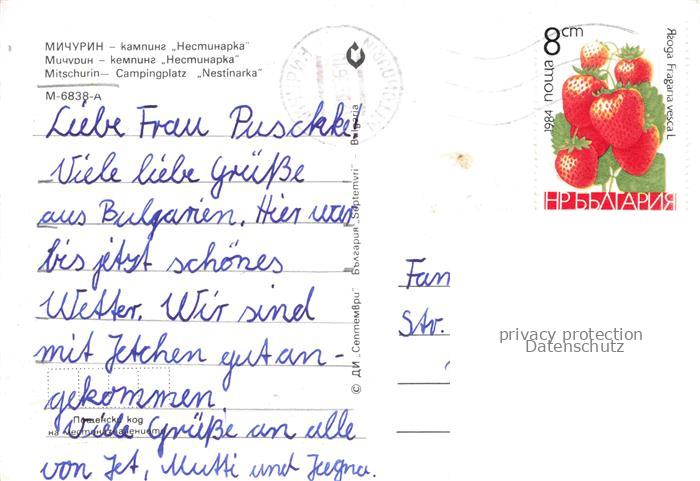 МИЧУРИН – кампинг „Нестинарка"
Мичурин – кемпинг „Нестинарка"
Mitschurin— Campingplatz „Nestinarka"
М-6838-А
Liebe Frau Puschke,
Viele liebe Grüße
aus Bulgarien. Hier war
bis jetzt schönes
Wetter. Wir sind
mit Jetchen gut an-
gekommen.
Пощенски код
на местоназначението
Viele Grüße an alle
von Jet, Mutti und
© ДИ „Септември" България „Septemvri" – Bulgaria
8 cm
поща
1984
Ягода Fragaria vesca L
НР БЪЛГАРИЯ
Fam
Str.
privacy protection
Datenschutz